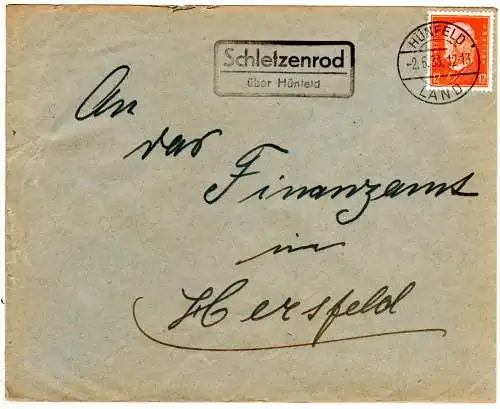 Schletzenrod
über Hünfeld
HÜNFELD
LAND
12
12
An
das
Finanzamt
in
Hersfeld